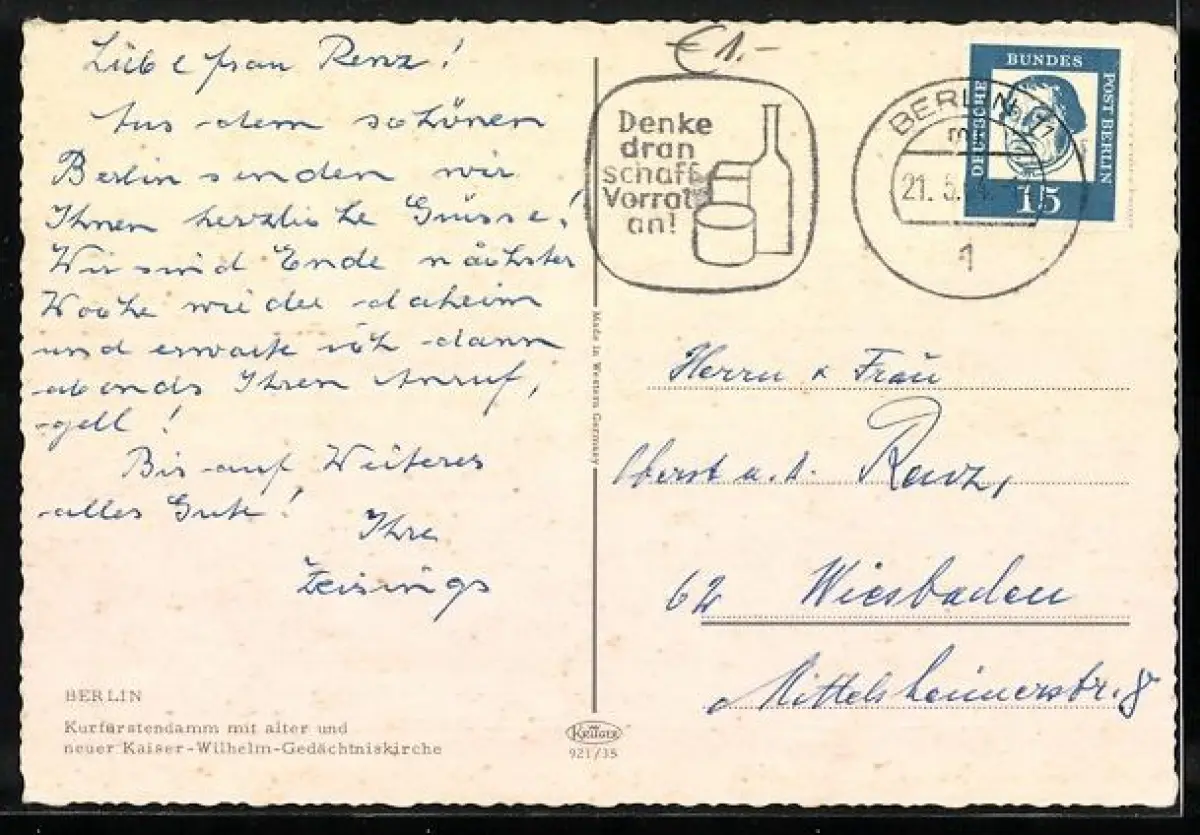 Liebe Frau Renz!
Aus dem schönen
Berlin senden wir
Ihnen herzliche Grüsse!
Wir sind Ende nächster
Woche wieder daheim
und erwarte ich dann
abends Ihren Anruf,
gell!
Bis auf Weiteres
alles Gute!
Ihre
Zeisings
BERLIN
Kurfürstendamm mit alter und
neuer Kaiser-Wilhelm-Gedächtniskirche
Made in Western Germany
Krüger
921/35
€1.-
Denke
dran
schaff
Vorrat
an!
BERLIN
21. 5.
1
DEUTSCHE
BUNDES
POST BERLIN
15
Herrn & Frau
Oberst a. d. Renz,
62 Wiesbaden
Mittelsheimerstr. 8